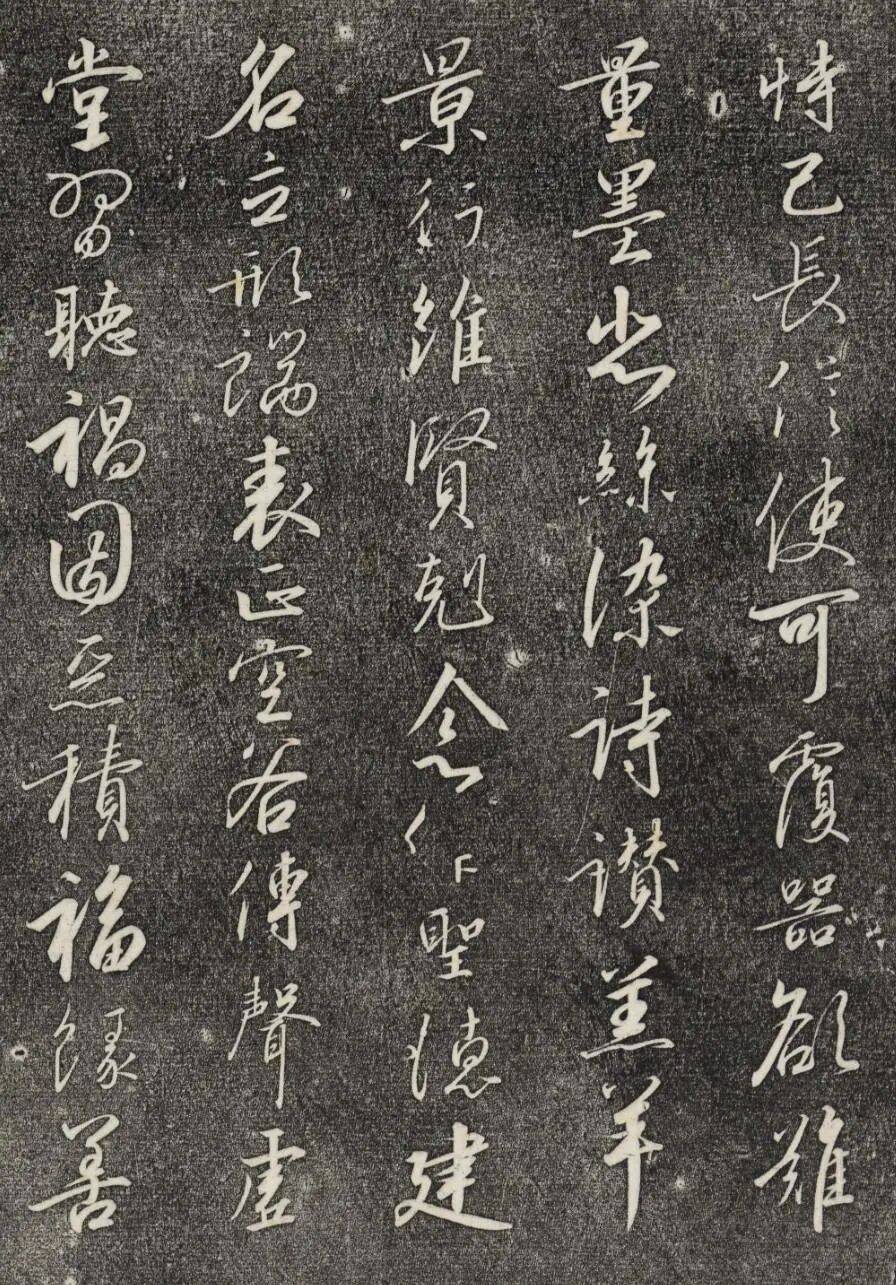 恃己長信使可覆器欲難
量墨悲絲染詩讃羔羊
景行維賢剋念作聖德建
名立形端表正空谷傳聲虛
堂習聽禍因惡積福緣善